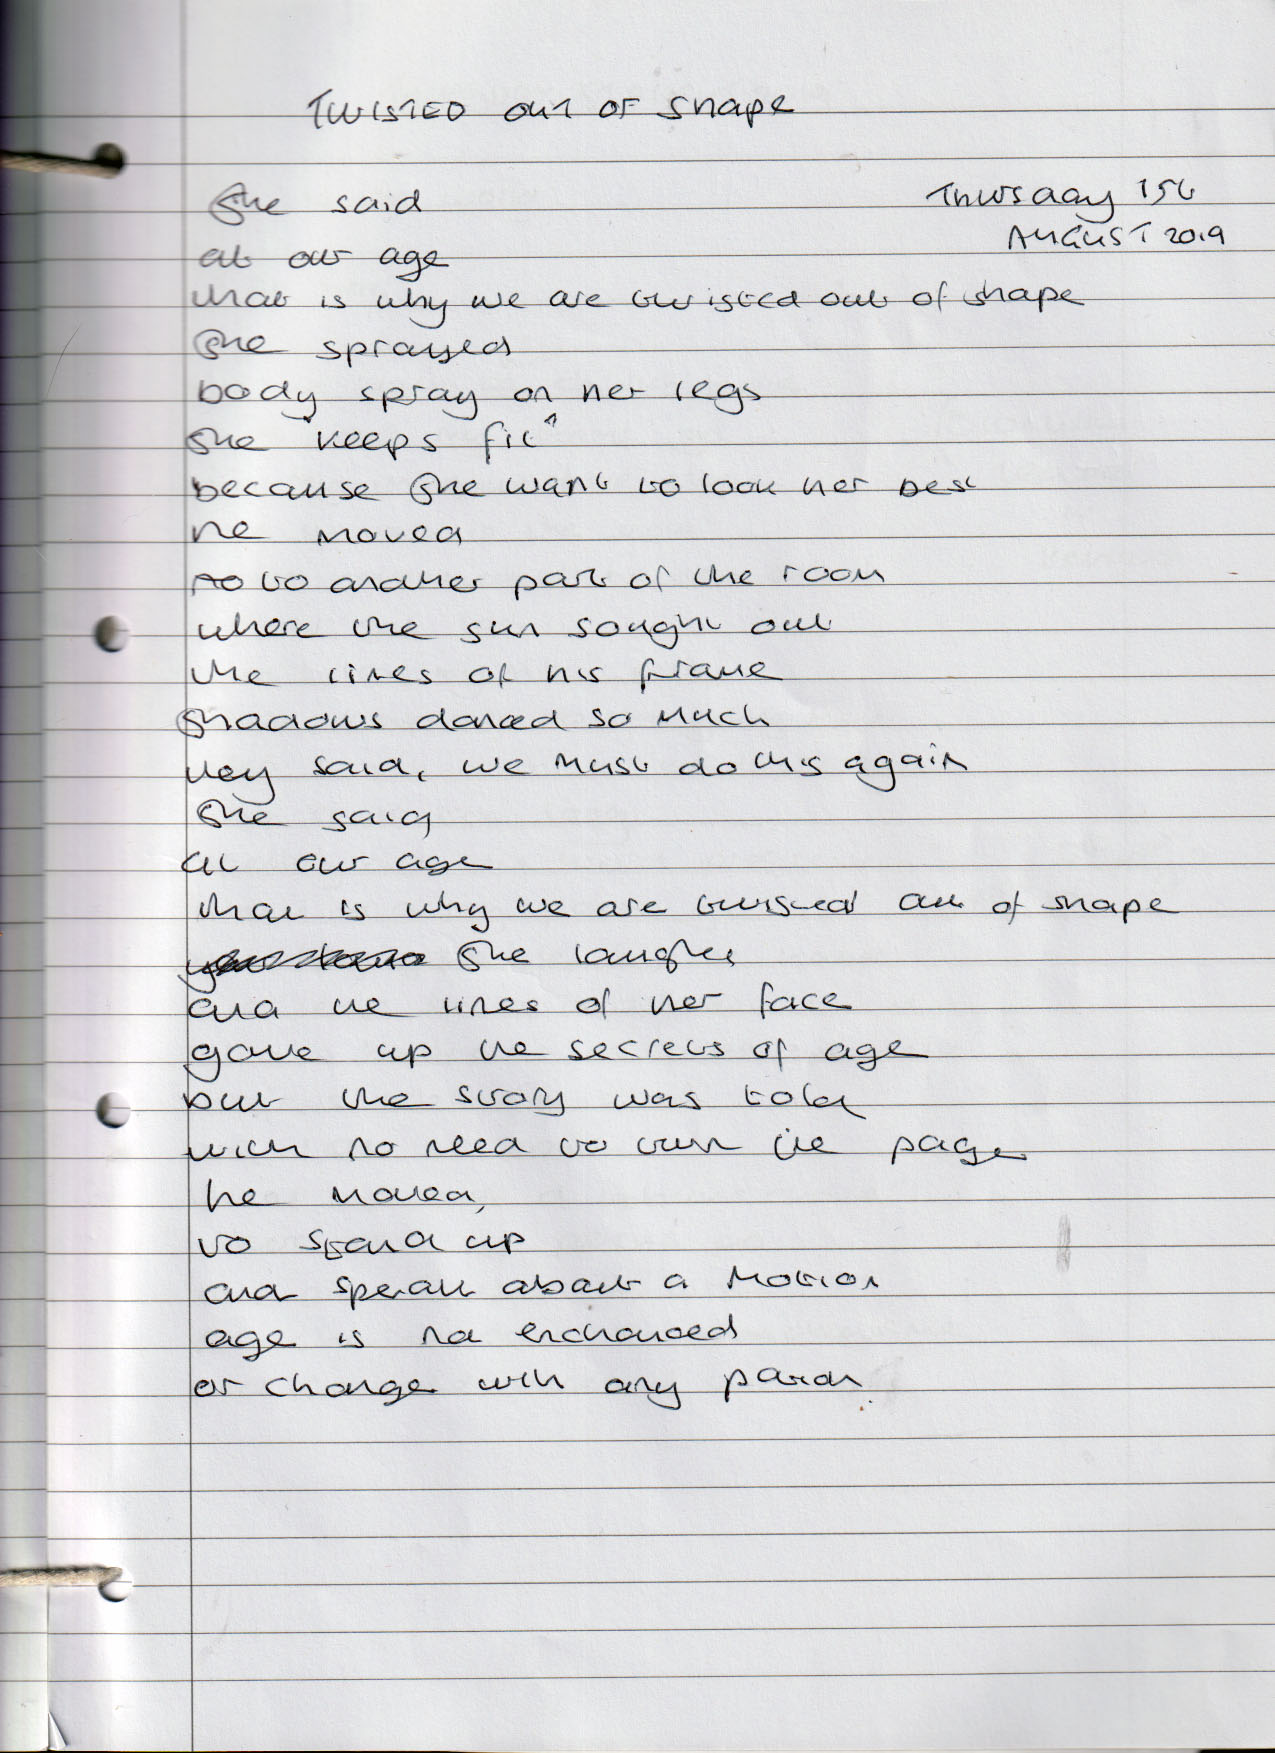 TWISTED OUT OF SHAPE
Thursday 1st
AUGUST 2019
She said
at our age
that is why we are twisted out of shape
She sprayed
body spray on her legs
she "keeps fit"
because she want to look her best
he moved
to to another part of the room
where the sun sought out
the lines of his frame
Shadows danced so much
they said, we must do this again
She said
at our age
that is why we are twisted out of shape
She laughs
and the lines of her face
gave up the secrets of age
but the story was told
with no need to turn the page
he moved,
to stand up
and speak about a motion
age is not enchanced
or change with any